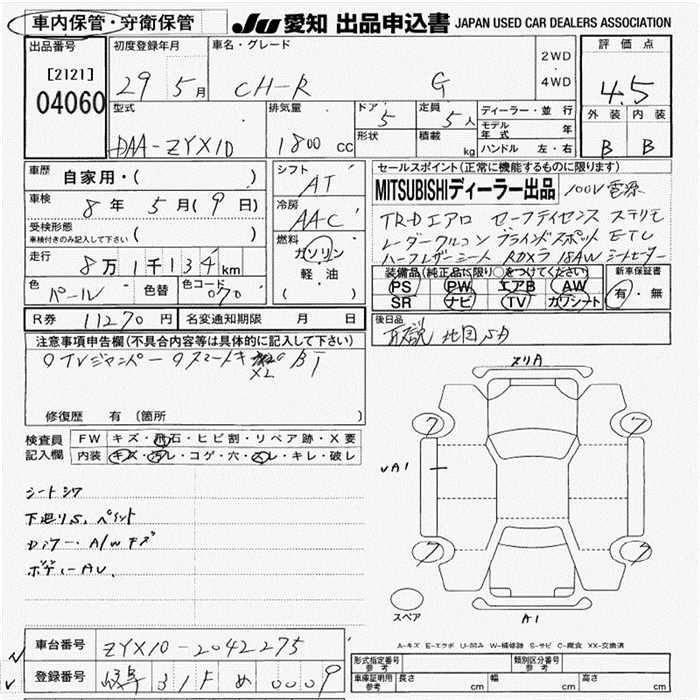 車内保管・守衛保管 JU 愛知 出品申込書 JAPAN USED CAR DEALERS ASSOCIATION
出品番号 初度登録年月 車名・グレード 2WD 4WD 評価点
[2121] 29 5月 CH-R G 4.5
04060 型式 排気量 ドア 5 定員 5人 ディーラー・並行 外装 内装
DAA-ZYX10 1800 CC 形状 積載 kg モデル年式 年 B B
ハンドル 左・右
車歴 自家用・( ) シフト AT セールスポイント(正常に機能するものに限ります)
車検 8年 5月(9日) 冷房 AAC MITSUBISHIディーラー出品 100V電源
受検形態 車検付きのみ記入して下さい ( ) 燃料 ガソリン 軽・油 ( ) TR-Dエアロ セーフティセンス ステリモ
走行 8万1千134km レーダークルコン ブラインドスポット ETC
ハーフレザーシート Rカメラ 18AW シートヒーター
色 パール 色替 色コード 070 装備品(純正品に限り○をつけてください) 新車保証書
PS PW エアB AW 有・無
SR ナビ TV ガワシート
R券 11270円 名変通知期限 月 日 後日品
取説 地図
注意事項申告欄(不具合内容等は具体的に記入して下さい)
TVジャンパー スマートキー X2 BT
修復歴 有 (箇所 )
検査員記入欄 FW キズ・飛石・ヒビ割・リペア跡・X要
内装 キズ・汚レ・コゲ・穴・スレ・キレ・破レ
シートシワ
下廻りS、ペイント
A/Wキズ
ボディーAU、
ヌリA
7 7
UA1
7 7
スペア A1
A-キズ E-エクボ U-凹み W-補修跡 S-サビ C-腐食 XX-交換済
車台番号 ZYX10-2042275 型式指定番号 参考 類別区分番号 参考
登録番号 岐阜 31F め 0009 車庫証明用 参考 長さ cm 幅 cm 高さ cm